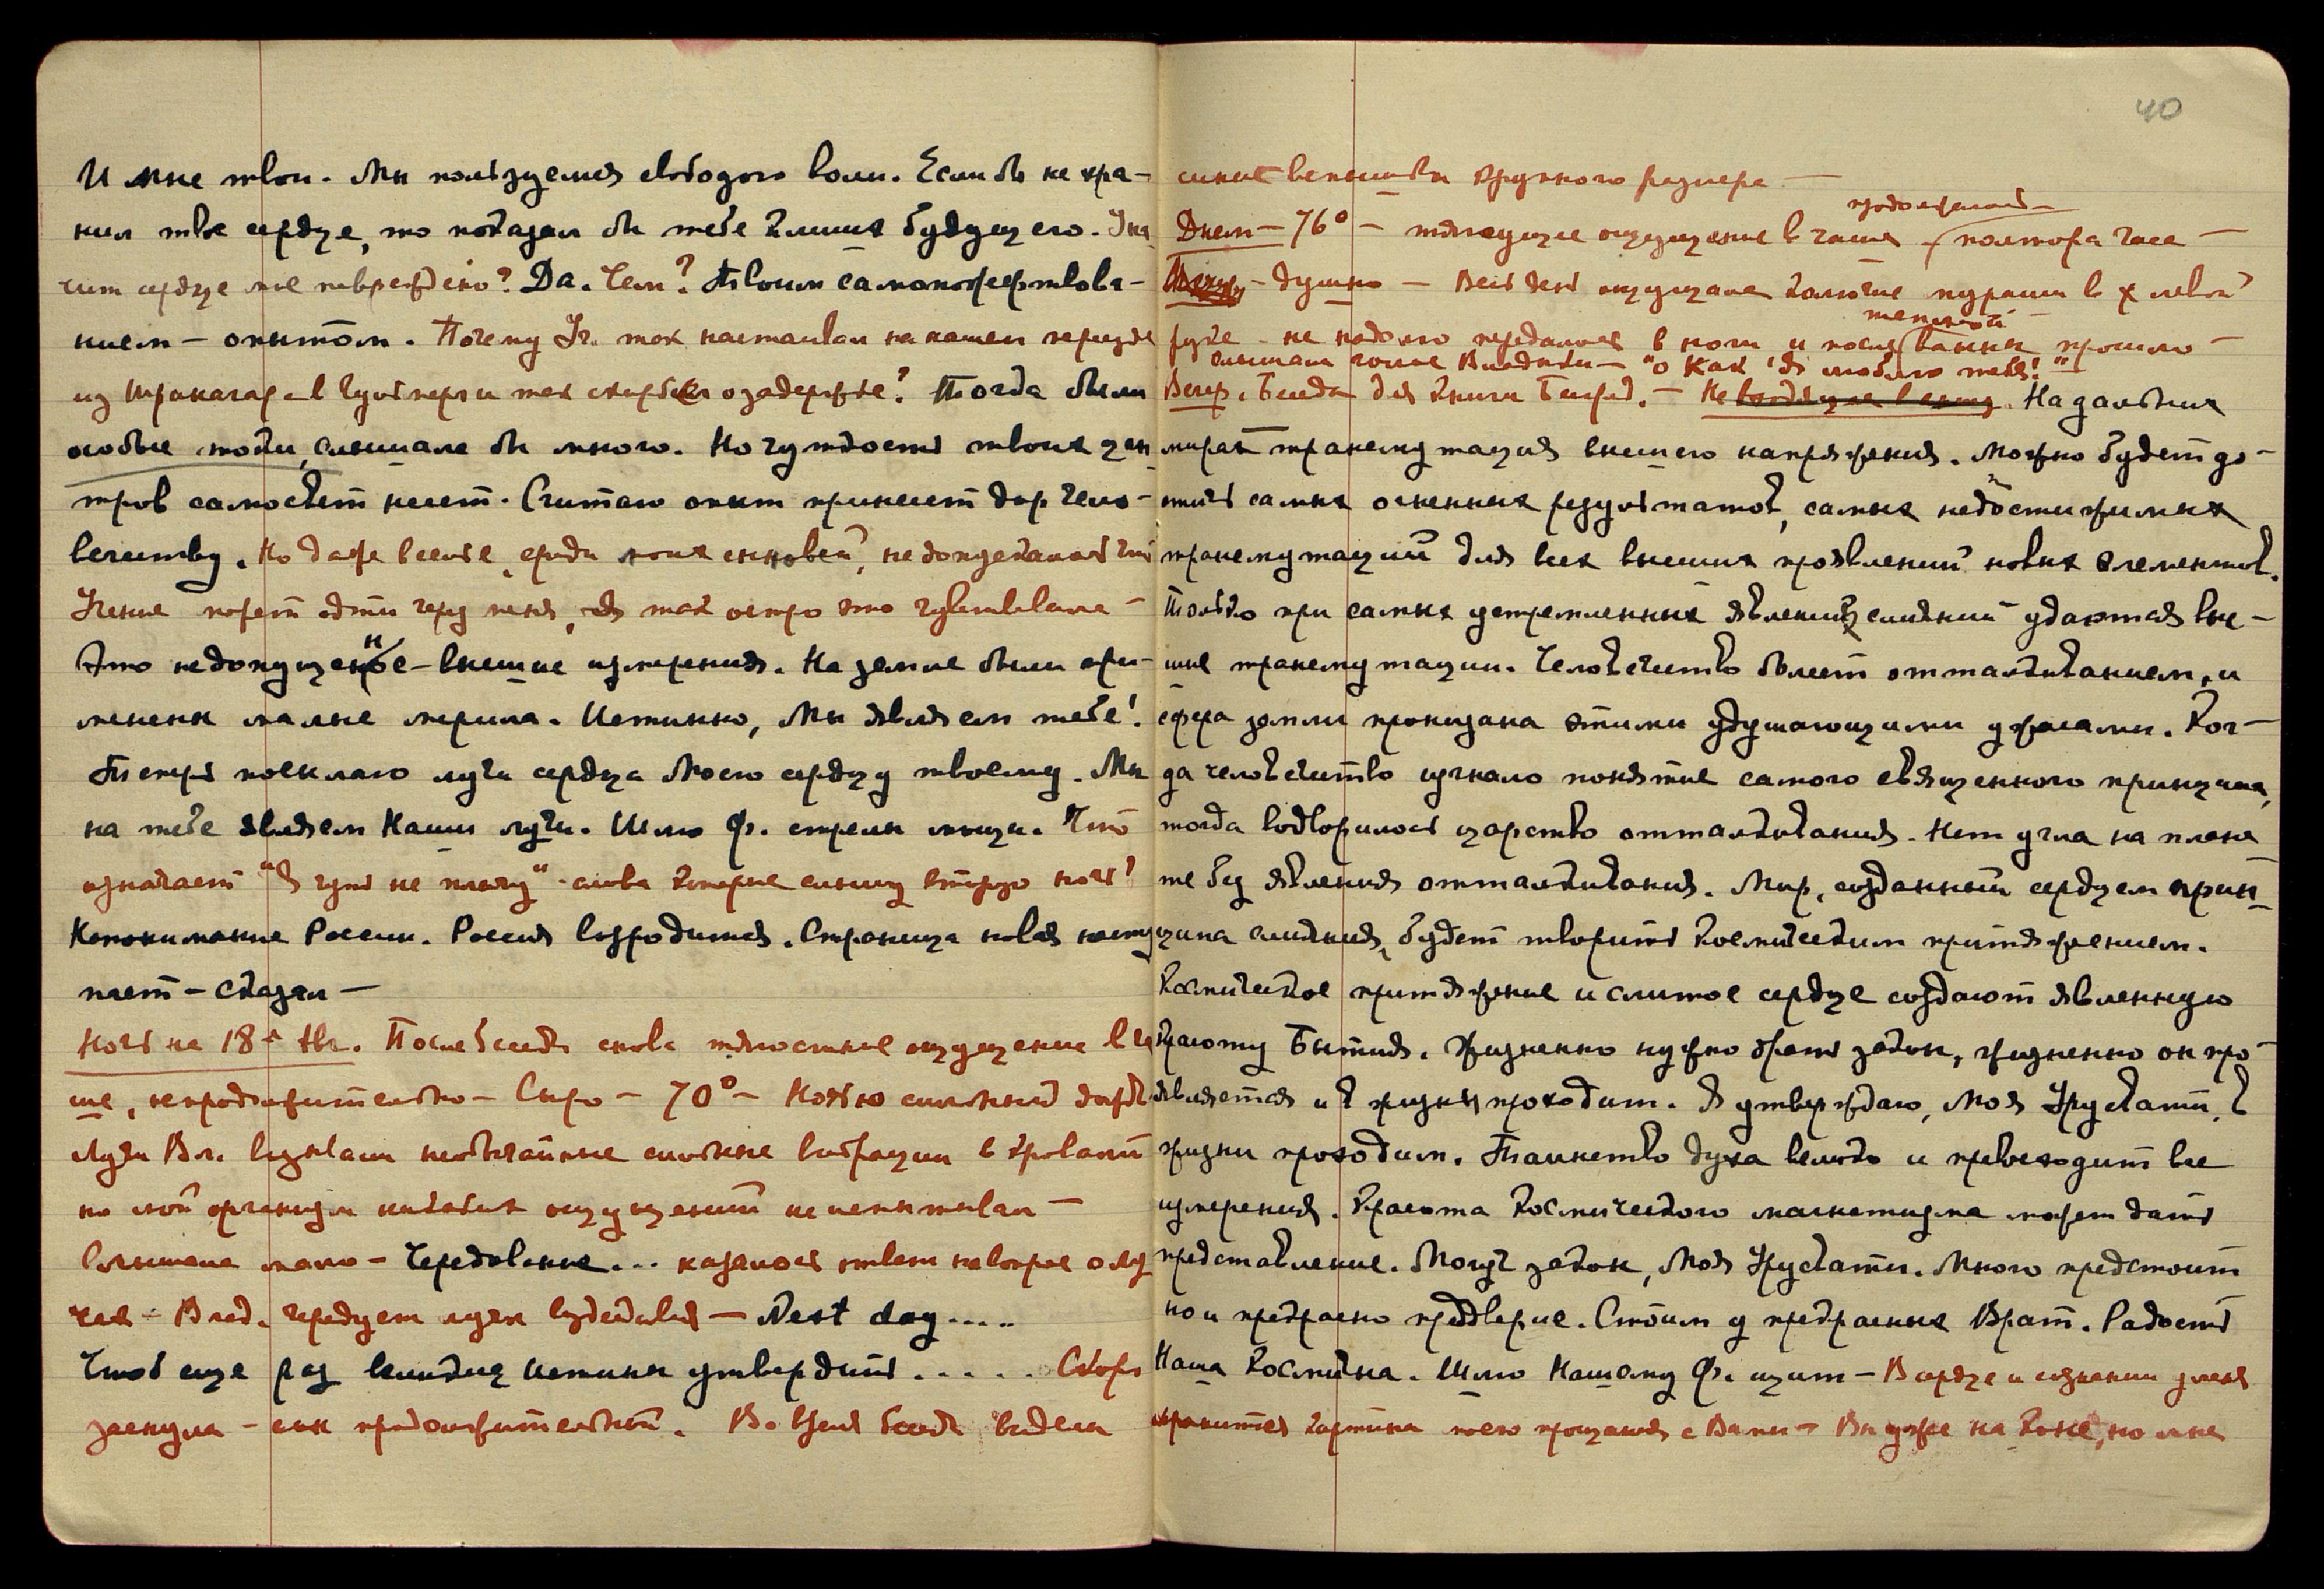 И мне твои. Мы пользуемся свободою воли. Если бы не хра-
нил твое сердце, то показал бы тебе клише будущего. Зна
чит сердце мое повреждено? Да. Чем? Твоим саможертвова-
нием – опытом. Почему Уч. так настаивал на нашем переезде
из в и так скорбел о задержке? Тогда были
особые токи, слышала бы много. Но чуткость твоих цен
тров самосвет несет. Считаю опыт принесет дар чело-
вечеству. Но даже в семье, среди моих сыновей,
Учение может идти через меня, я так остро это чувствовала –
Это недопущенное – высшие измерения. На земле были при-
менены малые мерила. Истинно, Мы являем тебе!
Теперь посылаю лучи сердца Моего сердцу твоему. Мы
на тебе являем Наши лучи. Шлю Ф. стрелы мощи. Что
означает "Я чуть не плачу" – слова которые слышу вторую ночь?
Непонимание России. Россия возродится. Страница новая насту
пает – сказал –
Ночь на 18-е Авг. После беседы снова тягостное ощущение в ча
ше, непродолжительно – Сыро – 70° – Ночью сильный дождь
Лучи Вл. вызвали необычайные сильные вибрации в кровати
но мой организм никаких ощущений не испытывал –
Слышала мало – Чередование... казалось ответ на вопрос о лу
чах – Влад. чередует лучи воздействия – Next day....
Чтоб еще раз великую истину утвердить ..... Скоро
заснула – сон продолжительный. Во время беседы видела
40
синие вспышки крупного размера –
продолжалось –
Днем – 76° – тянущее ощущение в чаше – полтора часа –
душно – Весь день ощущала колотье мураши в левой
теплой
руке – не надолго передалось в ноги и после ванны прошло –
слышала голос Владыки – "о Как Я люблю тебя!"
Вечер. Беседа для книги Беспред. – На дальних
мирах трансмутация высшего напряжения. Можно будет до-
стичь самых огненных результатов, самых недостижимых
трансмутаций для всех высших проявлений новых элементов.
Только при самых устремленных явлениях слияний удаются выс-
шие трансмутации. Человечество болеет отталкиванием, и
сфера земли пронизана этими удушающими ужасами. Ког-
да человечество изгнало понятие самого священного принципа,
тогда водворилось царство отталкивания. Нет угла на плане
те без явления отталкивания. Мир, созданный сердцем прин-
ципа слияния, будет творить космическим притяжением.
Космическое притяжение и слитое сердце создают явленную
красоту Бытия. Жизненно нужно брать закон, жизненно он про-
является и в жизни проходит. Я утверждаю, Моя Урусвати, в
жизни проходим. Таинство духа велико и превосходит все
измерения. Красота Космического магнетизма может дать
представление. Могуч закон, Моя Урусвати. Много предстоит
но и прекрасно преддверие. Стоим у прекрасных Врат. Радость
Наша Космична. Шлю Нашему Ф. щит – В сердце и сознании у меня
хранится картина моего прощания с Вами – Вы уже на коне, но мне